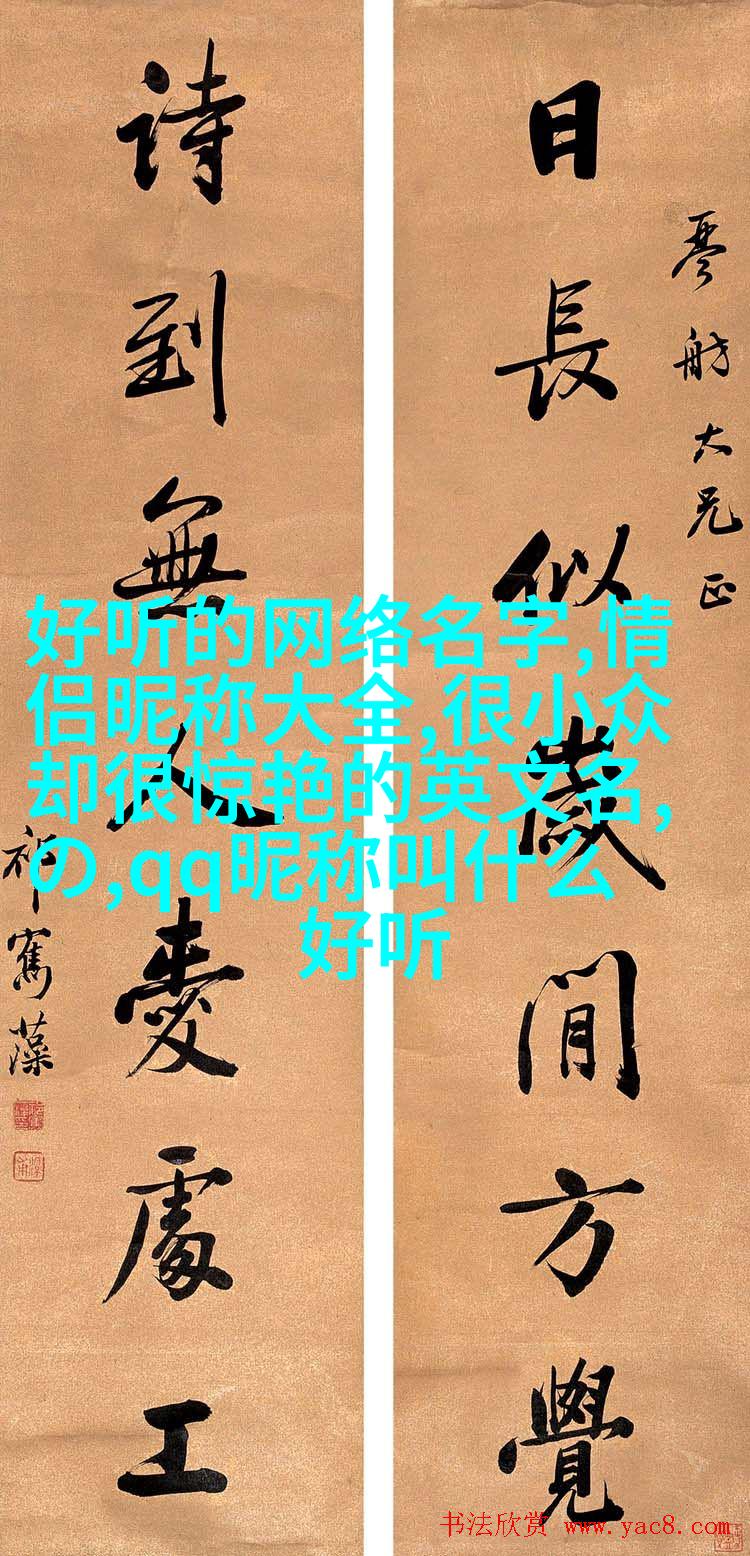 日長似歲閒方覺
琴舫大兄正
詩到無人愛處工
祁寯藻
好听的网络名字,情
侣昵称大全,很小众
却很惊艳的英文名,
の,qq昵称叫什么
好听
书法欣赏 www.yac8.com